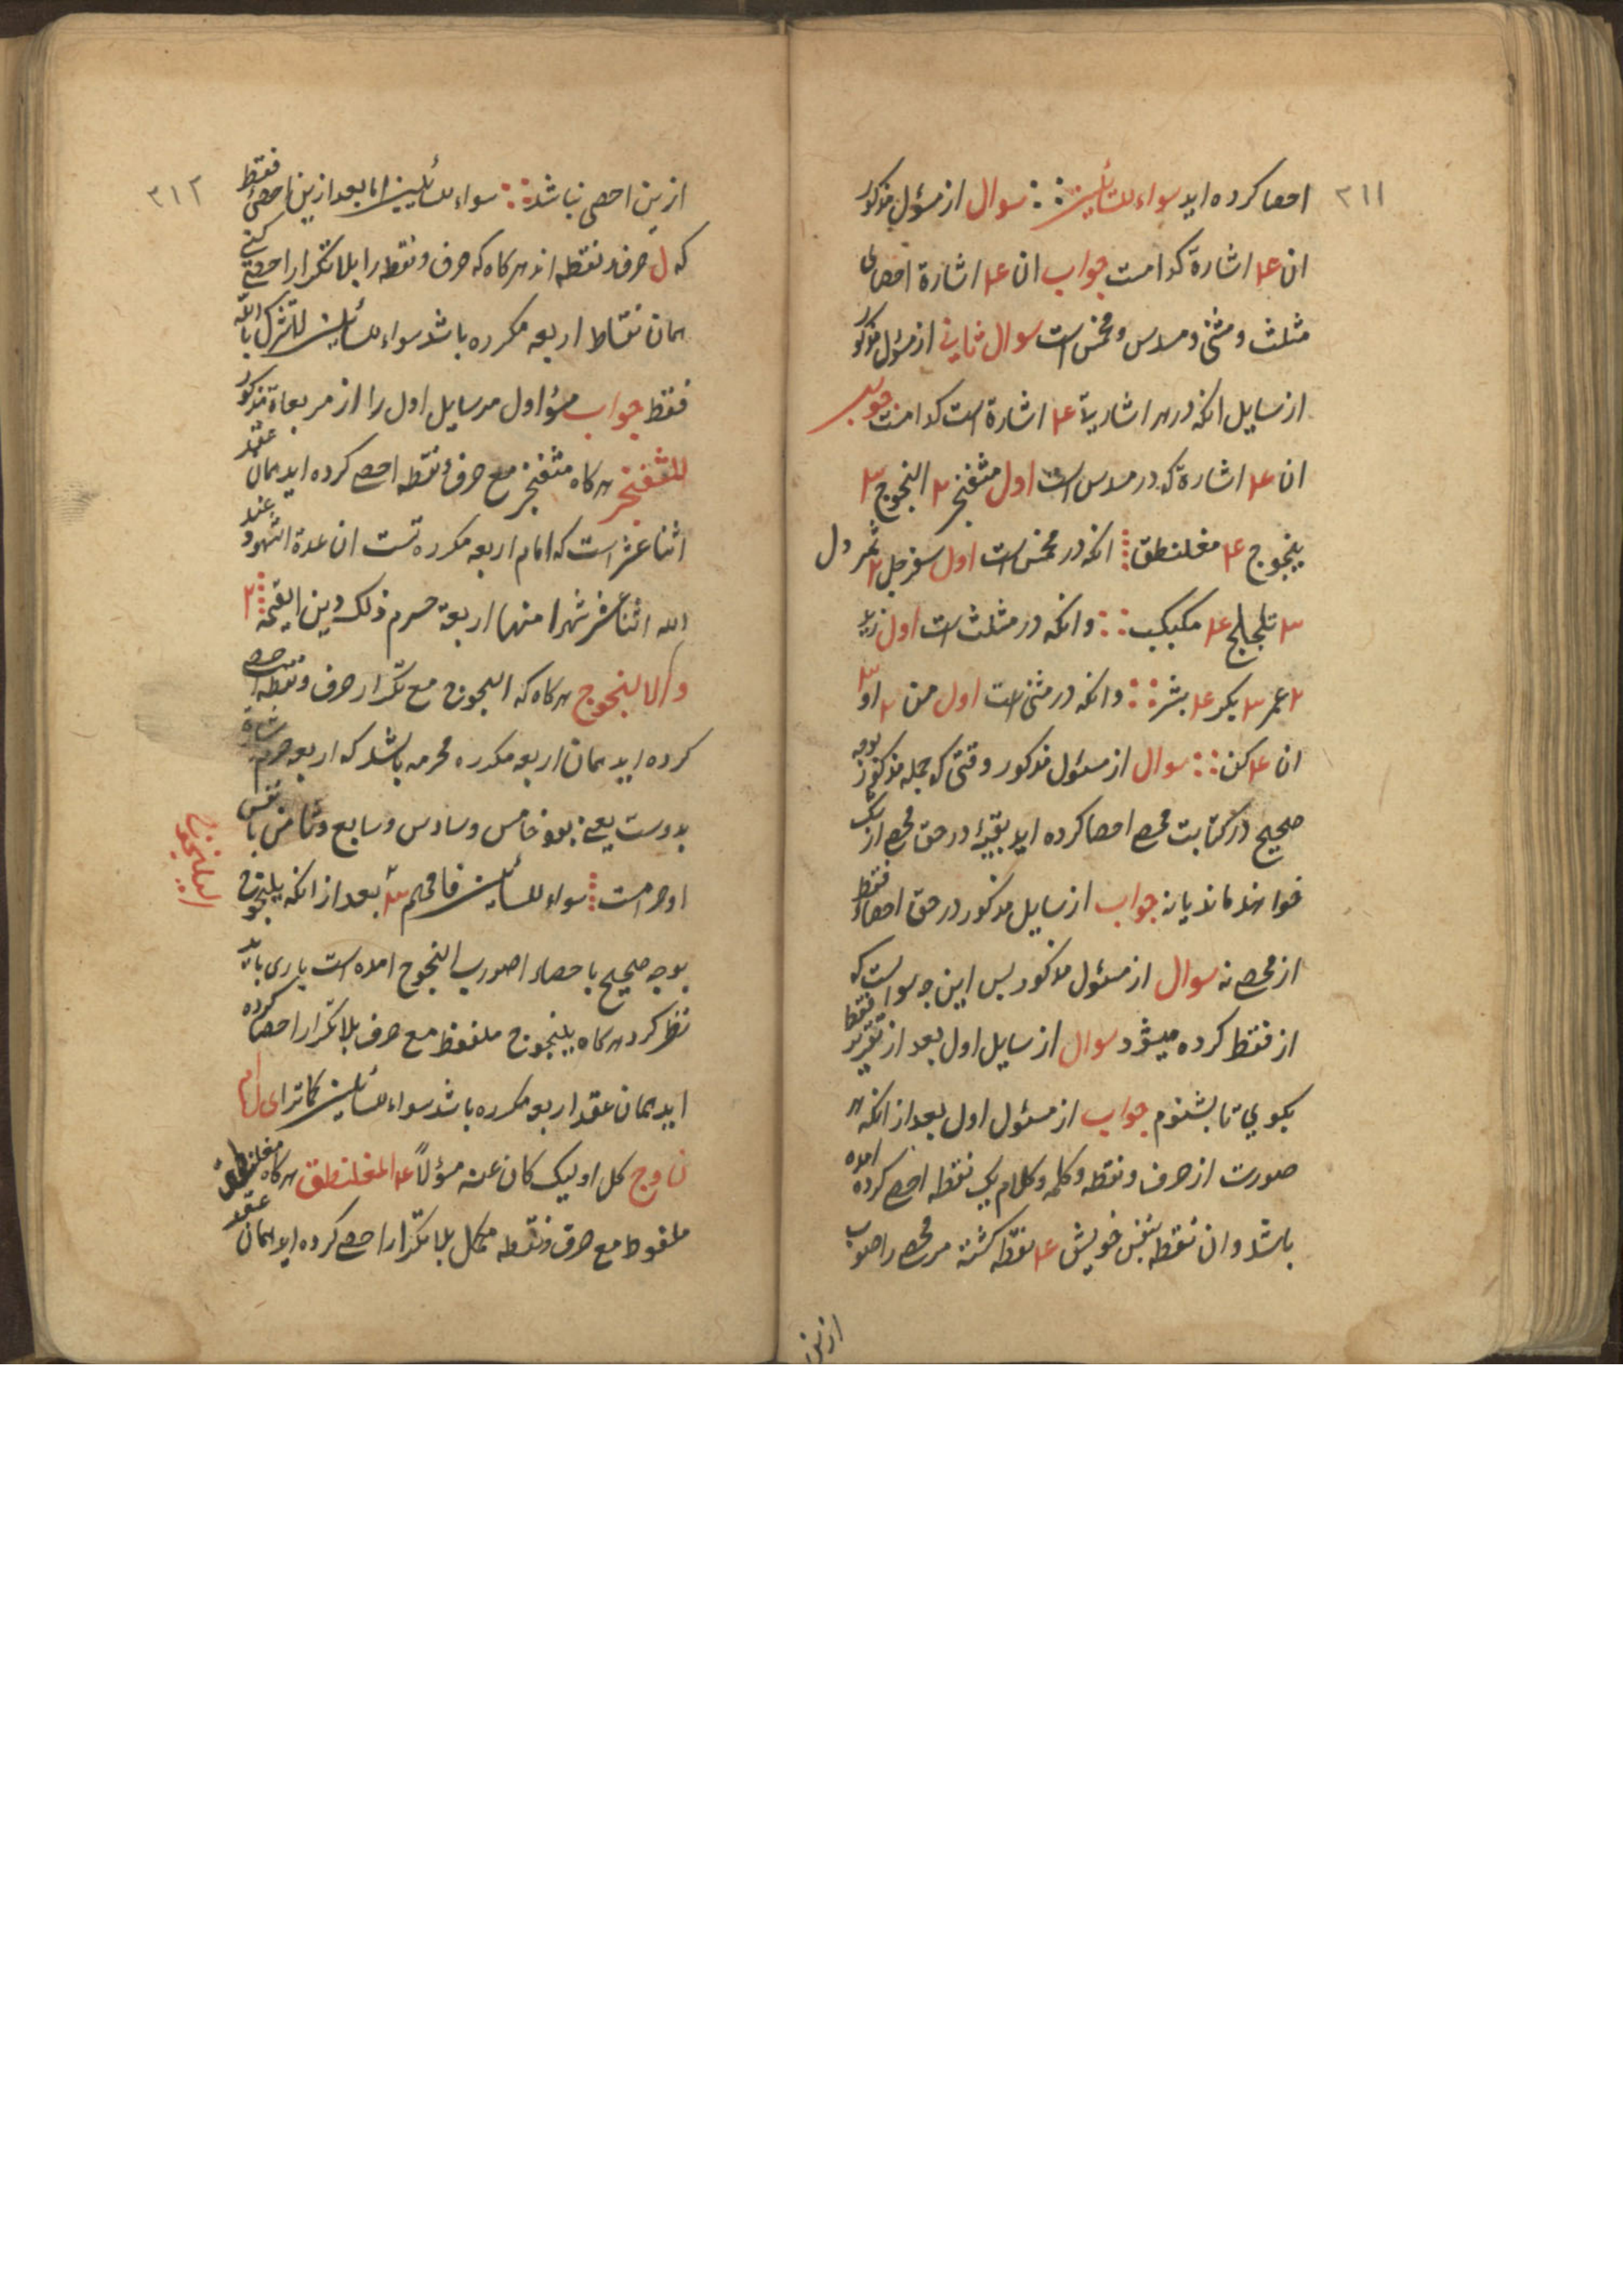 ٣١١
احصا كرده اید سواء للسائلین سوال از مسؤل مذكور
ان ۴ اشارة كدامست جواب ان ۴ اشارة احصای
مثلث و مثنی و مسدس و مخمس است سوال ثانی از مسؤل مذكور
از سایل انكه در هر اشاریة ۴ اشارة است كدامست جواب
ان ۴ اشارة كه در مسدس است اول مثفنجر ٢ النجوج ٣
ینجوج ۴ مغلنطق انكه در مخمس است اول سفرجل ٢ شمردل
٣ تلجلج ۴ مكبكب وانكه در مثلث است اول زید
٢ عمر ٣ بكر ۴ بشر وانكه در مثنی است اول من ٢ او ٣
ان ۴ كن سوال از مسئول مذكور وقتی كه جمله مذكور بوجه
صحیح در كتابت محصی احصا كرده اید بقیة در حق محصی از یک
خواهند ماند یا نه جواب از سایل مذكور در حق احصاء فقط
از محصی نه سوال از مسئول مذكور پس این چه سوالست كه
از فقط كرده میشود سوال از سایل اول بعد از تقریر فقط
بكوی تا بشنوم جواب از مسئول اول بعد از انكه هر
صورت از حرف و نقطه و كلمه و كلام یک نقطه احصی كرده امده
باشد و ان نقطه بنفس خویش ۴ نقطه كشته مر محصی را صوب
ازین
٣١٢
ازین احصی نباشد سواء للسائلین اما بعد ازین احصی فقط
كه ل حرف و نقطه اند هر كاه كه حرف و نقطه را بلا تكرار احصی كنی
همان نقاط اربعه مكرره باشد سواء للسائلین للشرک بالله
فقط جواب مسؤل اول مر سایل اول را از مربعاة مذكور
المثفنجر هر كاه مثفنجر مع حرف و نقطه احصی كرده اید همان عقد
اثنا عشر است كه امام اربعه مكرره تست ان عدة الشهور عند
الله اثنا عشر شهرا منها اربعة حرم ذلک دین القیمة ٢
و الا لنجوج هر كاه كه النجوج مع تكرار حرف و نقطه احصی
كرده اید همان اربعه مكرره محرمه باشد كه اربعه حرم
بدوست یعنی بعد خامس و سادس و سابع و ثامن با نفس
او حرامست سواء للسائلین فافهم ٣ بعد از انكه یلنجوج
الیلنجوج
بوجه صحیح با حصاء اصوب النجوج امده است باری باید
نظر كرد هر كاه یلنجوج ملفوظ مع حرف بلا تكرار احصا كرده
اید همان عقد اربعه مكرره باشد سواء للسائلین كما ترای ل ام
ن و ج كل اولیک كان عنه مسؤلاً ۴ المغلنطق هر كاه مغلنطق
ملفوظ مع حرف و نقطه مكمل بلا تكرار احصی كرده اید همان عقد